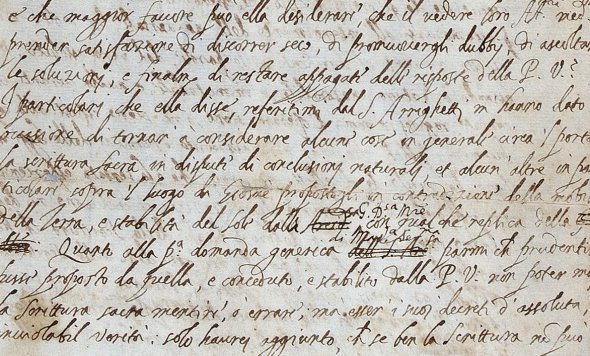 e che maggior favore può ella desiderare, che il vedere loro At. med
prender satisfazione di discorrer seco, di promuovergli dubbij, di ascoltar
le soluzioni, e finalm. di restare appagate delle risposte della P. V.?
I particolari che ella disse, referitimi dal S. Arrighetti m' hanno dato
cassione di tornar a considerare alcune cose in generale circa 'l portar
la scrittura sacra in dispute di conclusioni naturali, et alcun' altre in par
ticolari sopra 'l luogo di Giosuè propostogli in contradizione della mobi
della Terra, e stabilità del Sole dalla con qualche replica della
Quanto alla p.a domanda generica parmi che prudentiss
fusse proposto da quella, e conceduto, e stabilito dalla P. V. non poter mai
la Scrittura sacra mentire, o errare, ma esser i suoi decreti d' assoluta,
inviolabil verità: solo haurei aggiunto, che se ben la Scrittura nō può